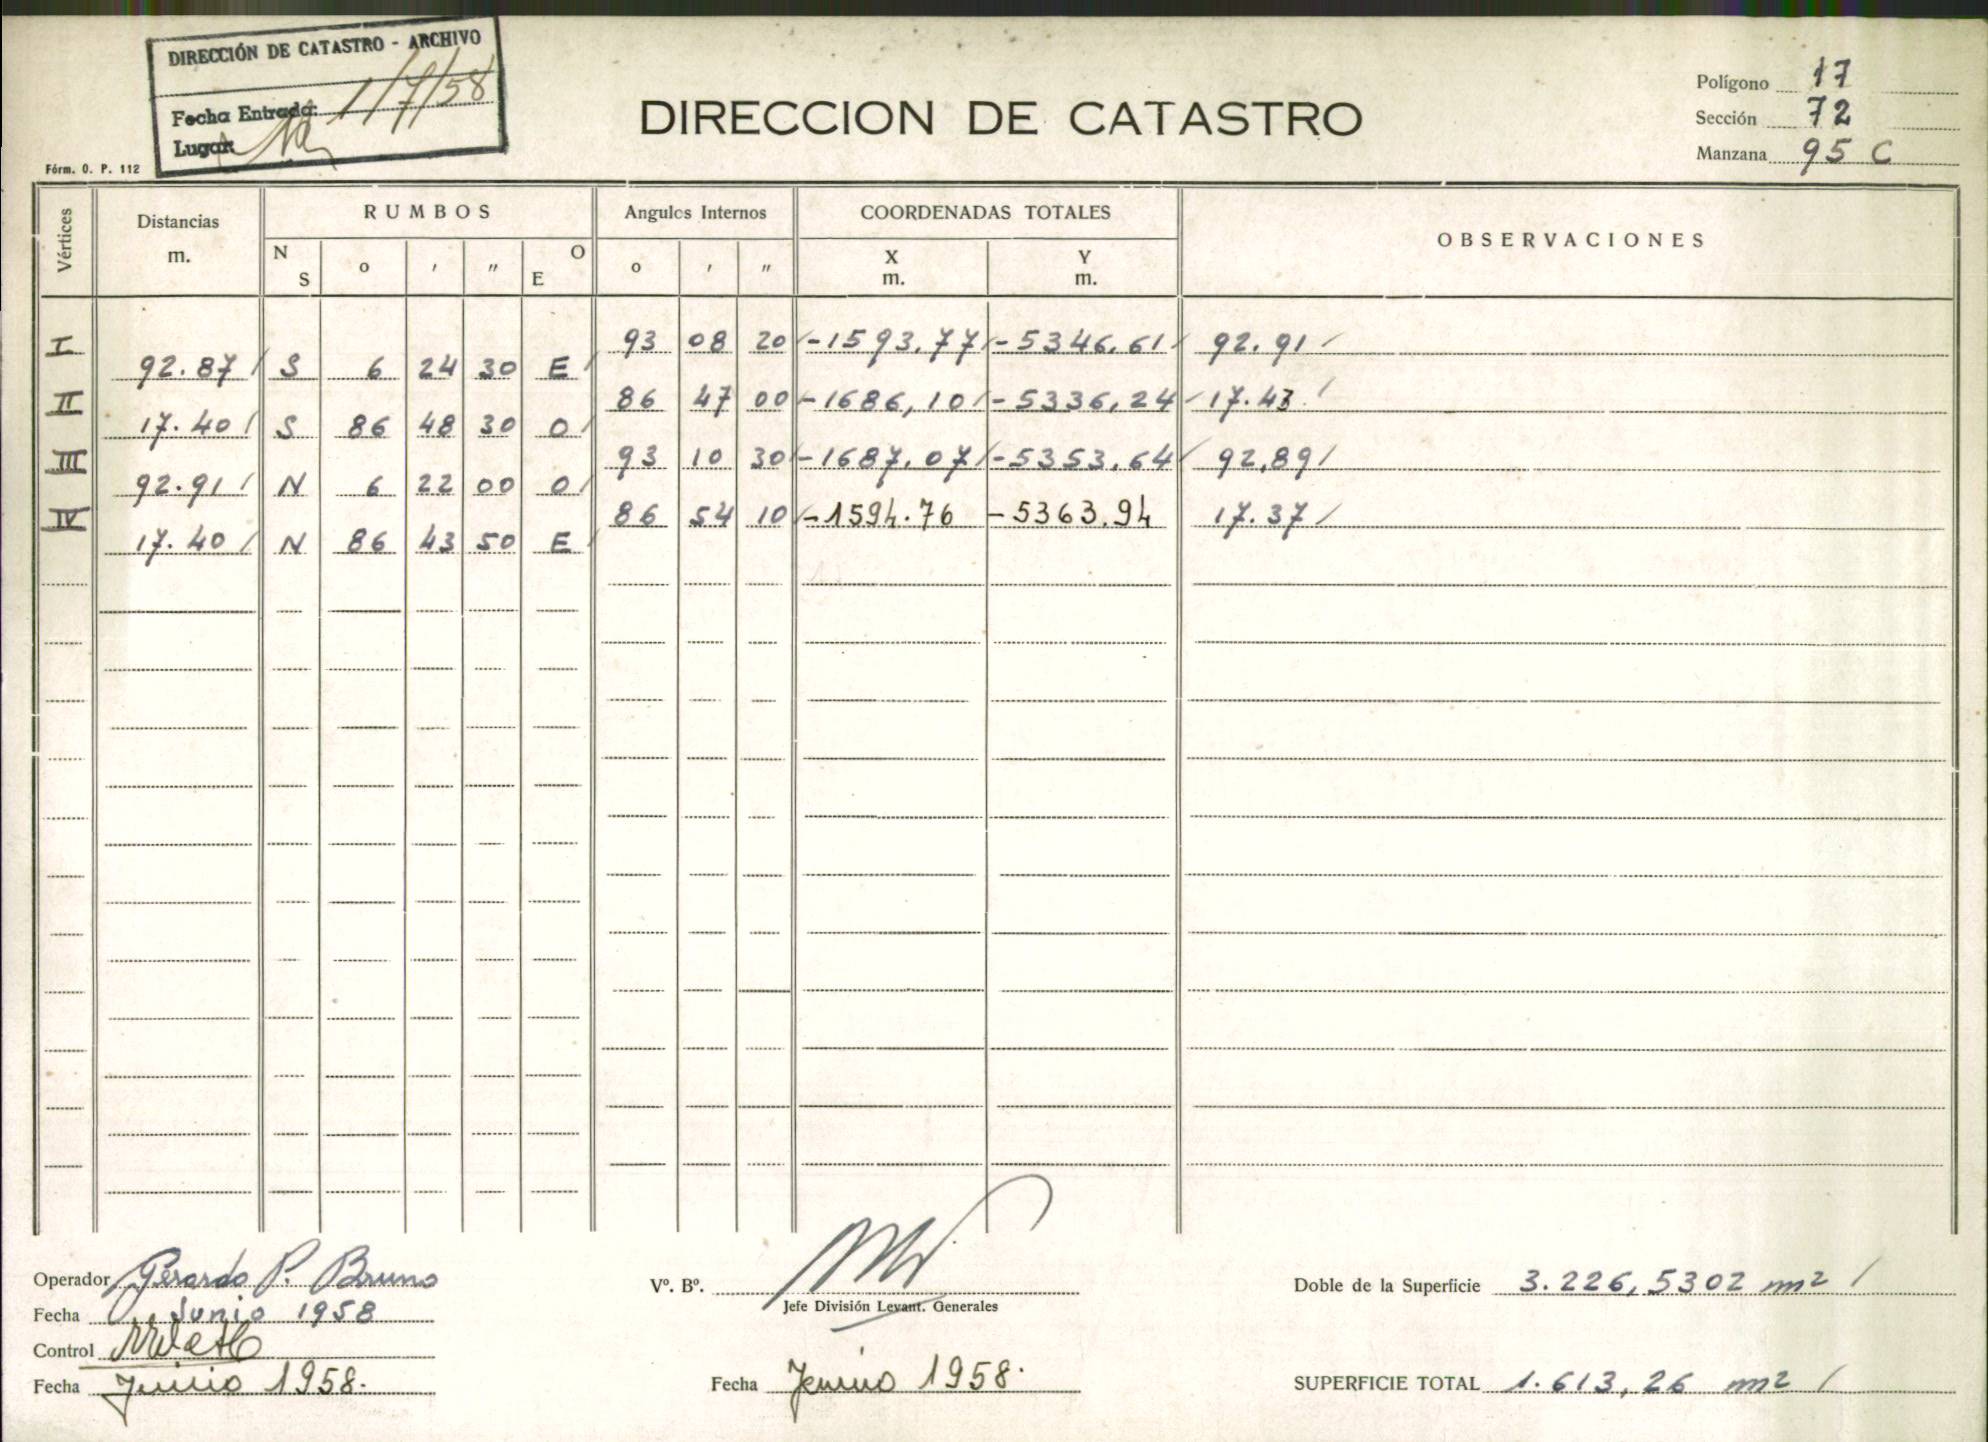 DIRECCIÓN DE CATASTRO - ARCHIVO
Fecha Entrada: 1/7/58
Lugar
Fórm. O. P. 112
DIRECCION DE CATASTRO
Polígono 17
Sección 72
Manzana 95 C
Vértices Distancias m. RUMBOS Angulos Internos COORDENADAS TOTALES OBSERVACIONES
N S o ' " O E o ' " X m. Y m.
I 93 08 20 -1593.77 -5346.61 92.91
92.87 S 6 24 30 E
II 86 47 00 -1686,10 -5336,24 17.43
17.40 S 86 48 30 O
III 93 10 30 -1687.07 -5353.64 92,89
92.91 N 6 22 00 O
IV 86 54 10 -1594.76 -5363.94 17.37
17.40 N 86 43 50 E
Operador Gerardo P. Bruno
Fecha Junio 1958
Control
Fecha Junio 1958.
Vº. Bº.
Jefe División Levant. Generales
Fecha Junio 1958.
Doble de la Superficie 3.226,5302 m2
SUPERFICIE TOTAL 1.613,26 m2